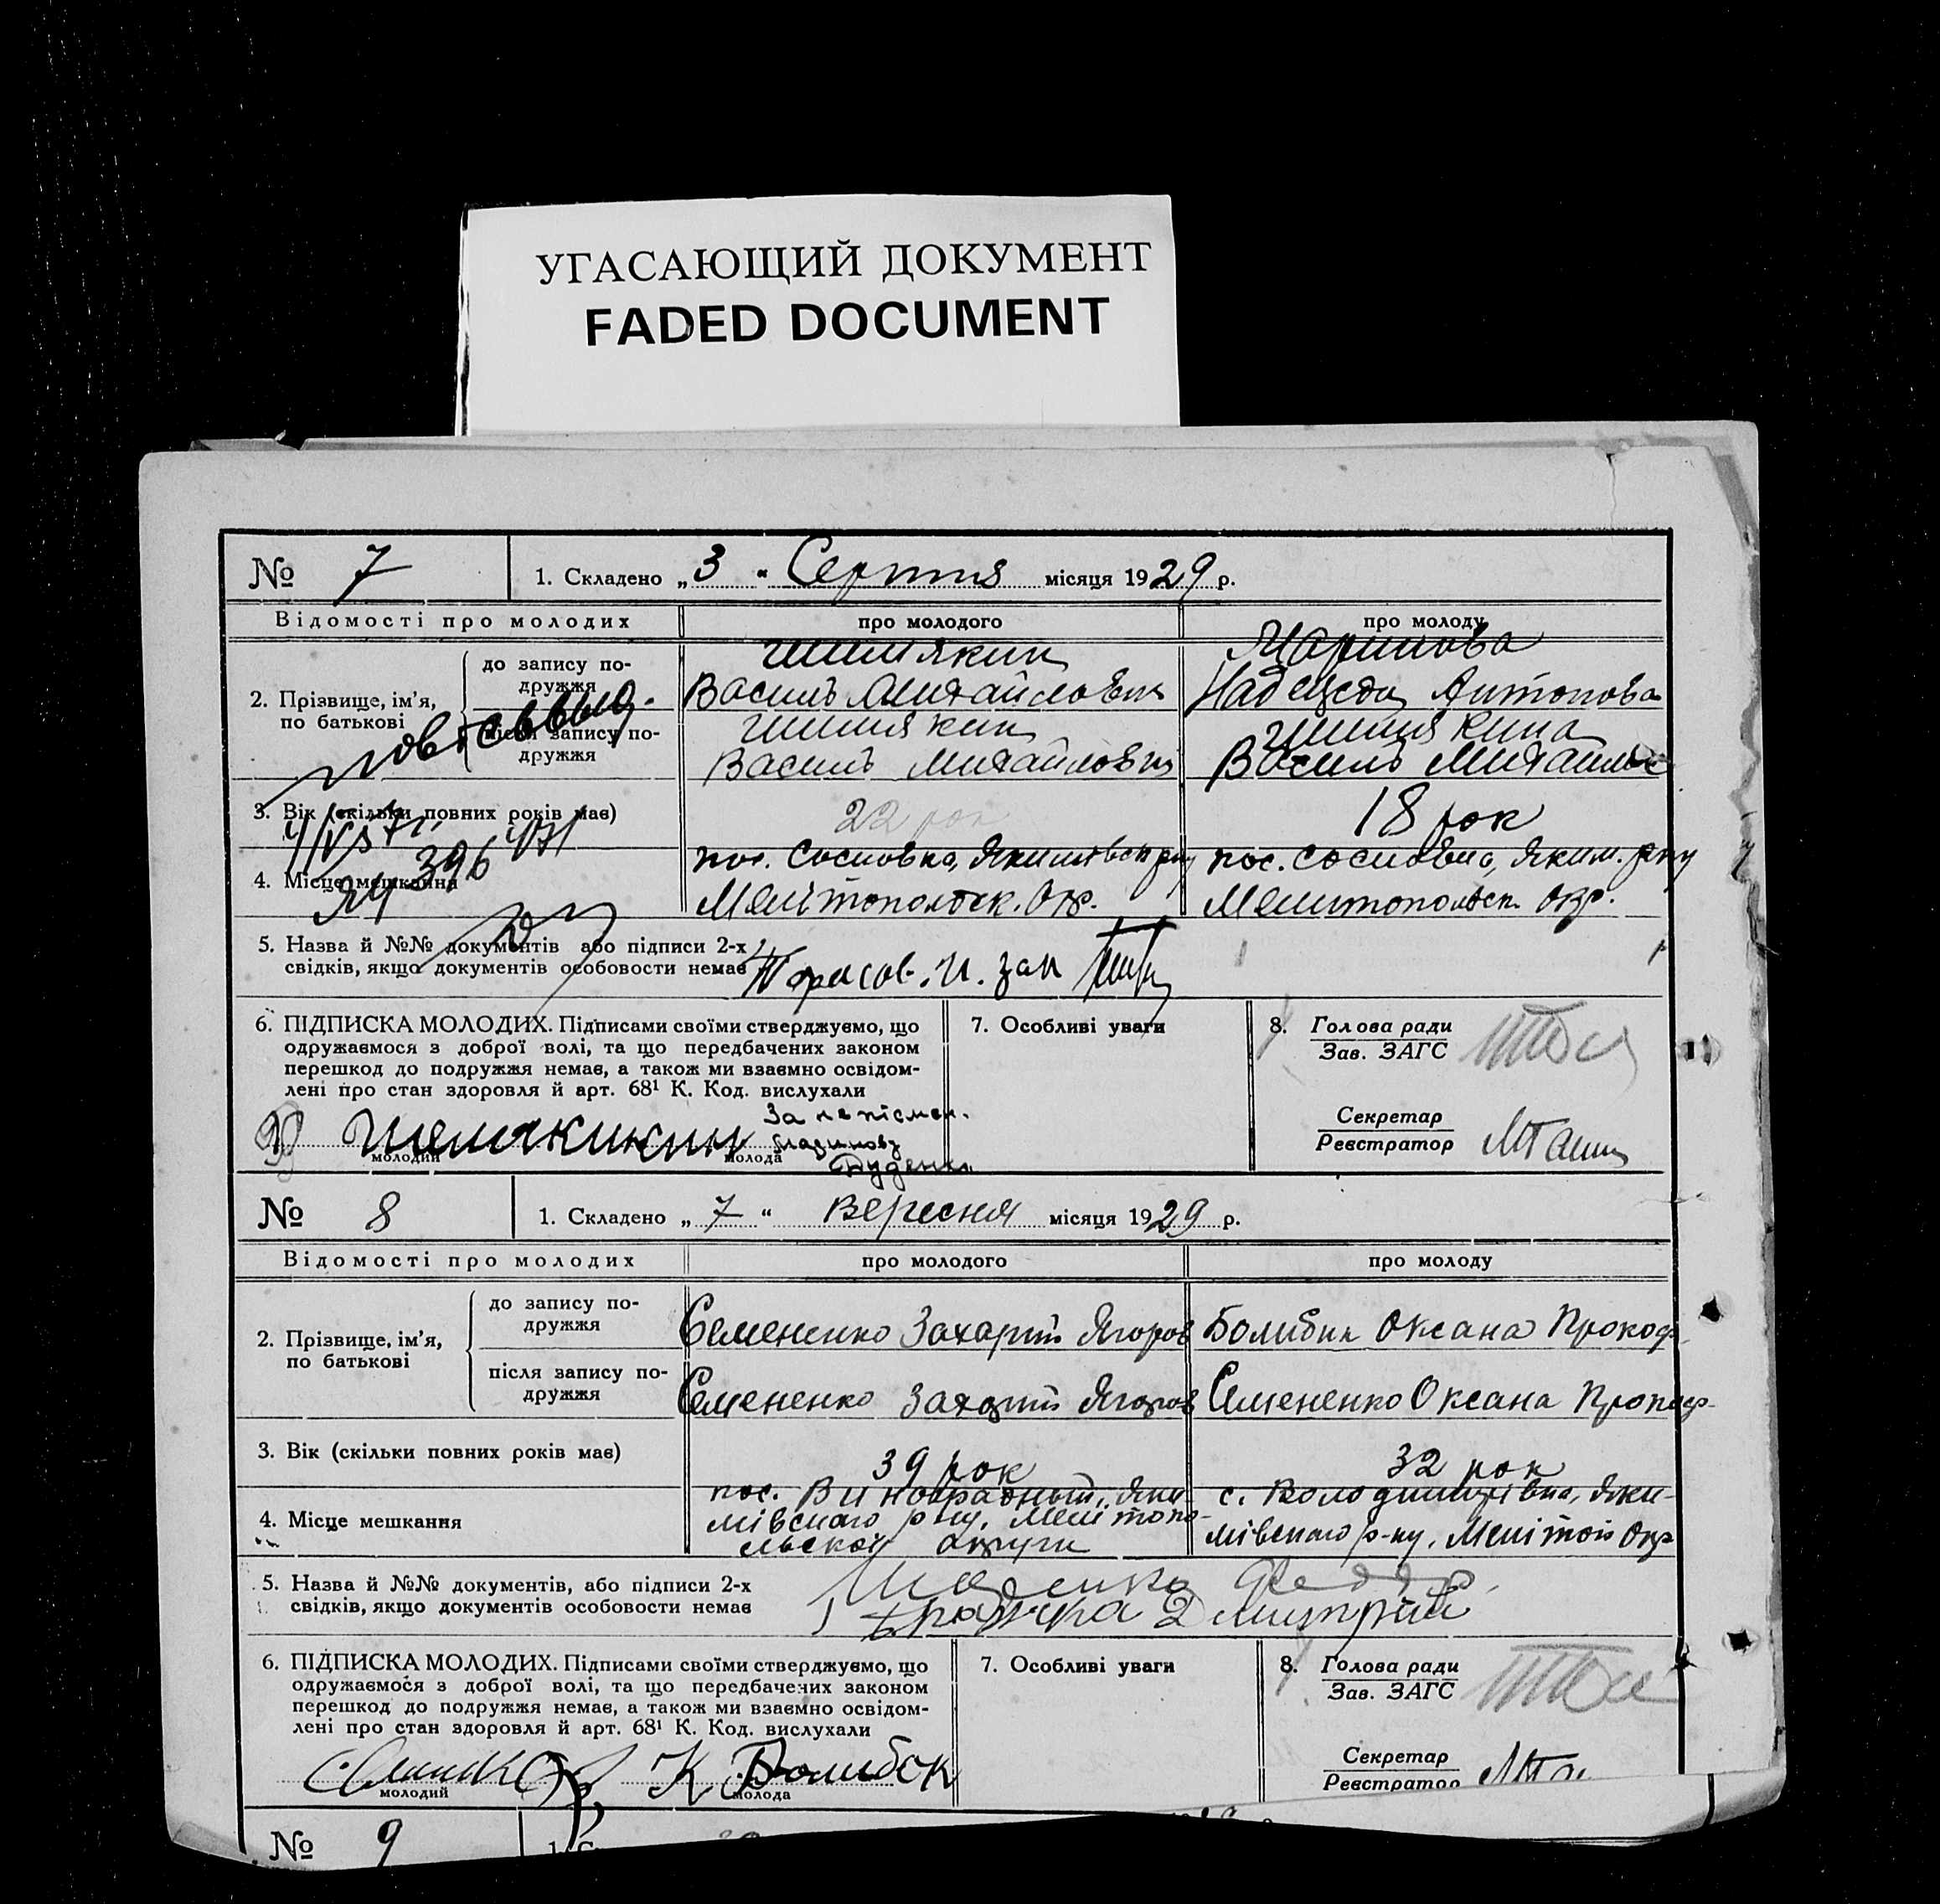 УГАСАЮЩИЙ ДОКУМЕНТ
FADED DOCUMENT
№ 7
1. Складено „ 3 “ Серпня місяця 1929 р.
Відомості про молодих
про молодого
про молоду
2. Прізвище, ім'я, по батькові
до запису по-
дружжя
Шишякин
Василь Михайлович
Надежда Антонова
після запису по-
дружжя
Шишякин
Василь Михайлович
Шишякина
Василь
3. Вік (скільки повних років має)
22 рок
18 рок
396
4. Місце мешкання
пос. Сосновка,
Мелітопольск. Окр.
пос. Сосновка, Яким. рну
Мелитопольск. Окр.
5. Назва й №№ документів або підписи 2-х
свідків, якщо документів особовости немає
6. ПІДПИСКА МОЛОДИХ. Підписами своїми стверджуємо, що
одружаємося з доброї волі, та що передбачених законом
перешкод до подружжя немає, а також ми взаємно освідом-
лені про стан здоровля й арт. 68¹ К. Код. вислухали
За непісмен.
молодий
молода
7. Особливі уваги
8. Голова ради
Зав. ЗАГС
Секретар
Реєстратор
№ 8
1. Складено „ 7 “ Вересня місяця 1929 р.
Відомості про молодих
про молодого
про молоду
2. Прізвище, ім'я,
по батькові
до запису по-
дружжя
Семененко Захарій Ягоров
Болибик Оксана Прокоф.
після запису по-
дружжя
Семененко Захарій Ягоров
Семененко Оксана Прокоф.
3. Вік (скільки повних років має)
39 рок
32 рок
4. Місце мешкання
пос. Виноградный, Яки-
мівского р-ну, Мелітопо-
льской округи
с. Володимирівка, Яки-
мівского р-ну, Мелітоп Окр
5. Назва й №№ документів, або підписи 2-х
свідків, якщо документів особовости немає
Дмитрій
6. ПІДПИСКА МОЛОДИХ. Підписами своїми стверджуємо, що
одружаємося з доброї волі, та що передбачених законом
перешкод до подружжя немає, а також ми взаємно освідом-
лені про стан здоровля й арт. 68¹ К. Код. вислухали
молодий
молода
7. Особливі уваги
8. Голова ради
Зав. ЗАГС
Секретар
Реєстратор
№ 9